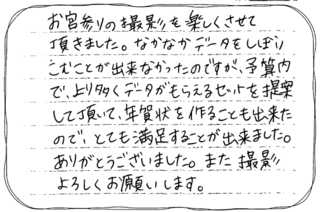 お宮参りの撮影を楽しくさせて
頂きました。なかなかデータをしぼり
こむことが出来なかったのですが、予算内
で、より多くデータがもらえるセットを提案
して頂いて、年賀状を作ることも出来た
ので、とても満足することが出来ました。
ありがとうございました。また撮影
よろしくお願いします。